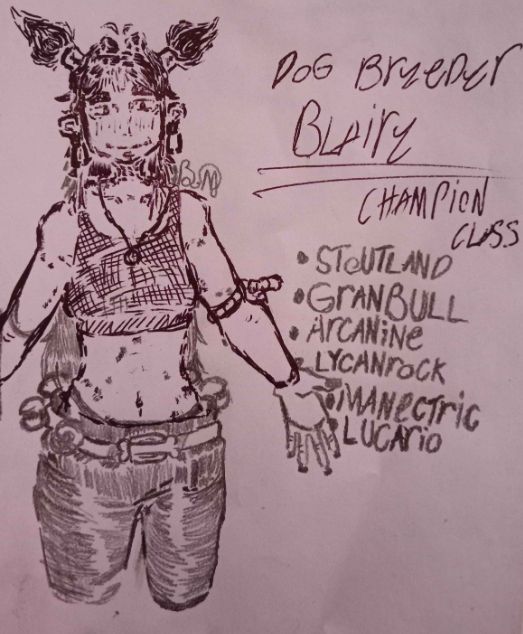 DoG BreeDer
BLAiry
CHAMPiON
CLASS
• STOUTLAND
• GRANBULL
• ARCANINE
• LYCANrock
• MANectric
• LUCARio